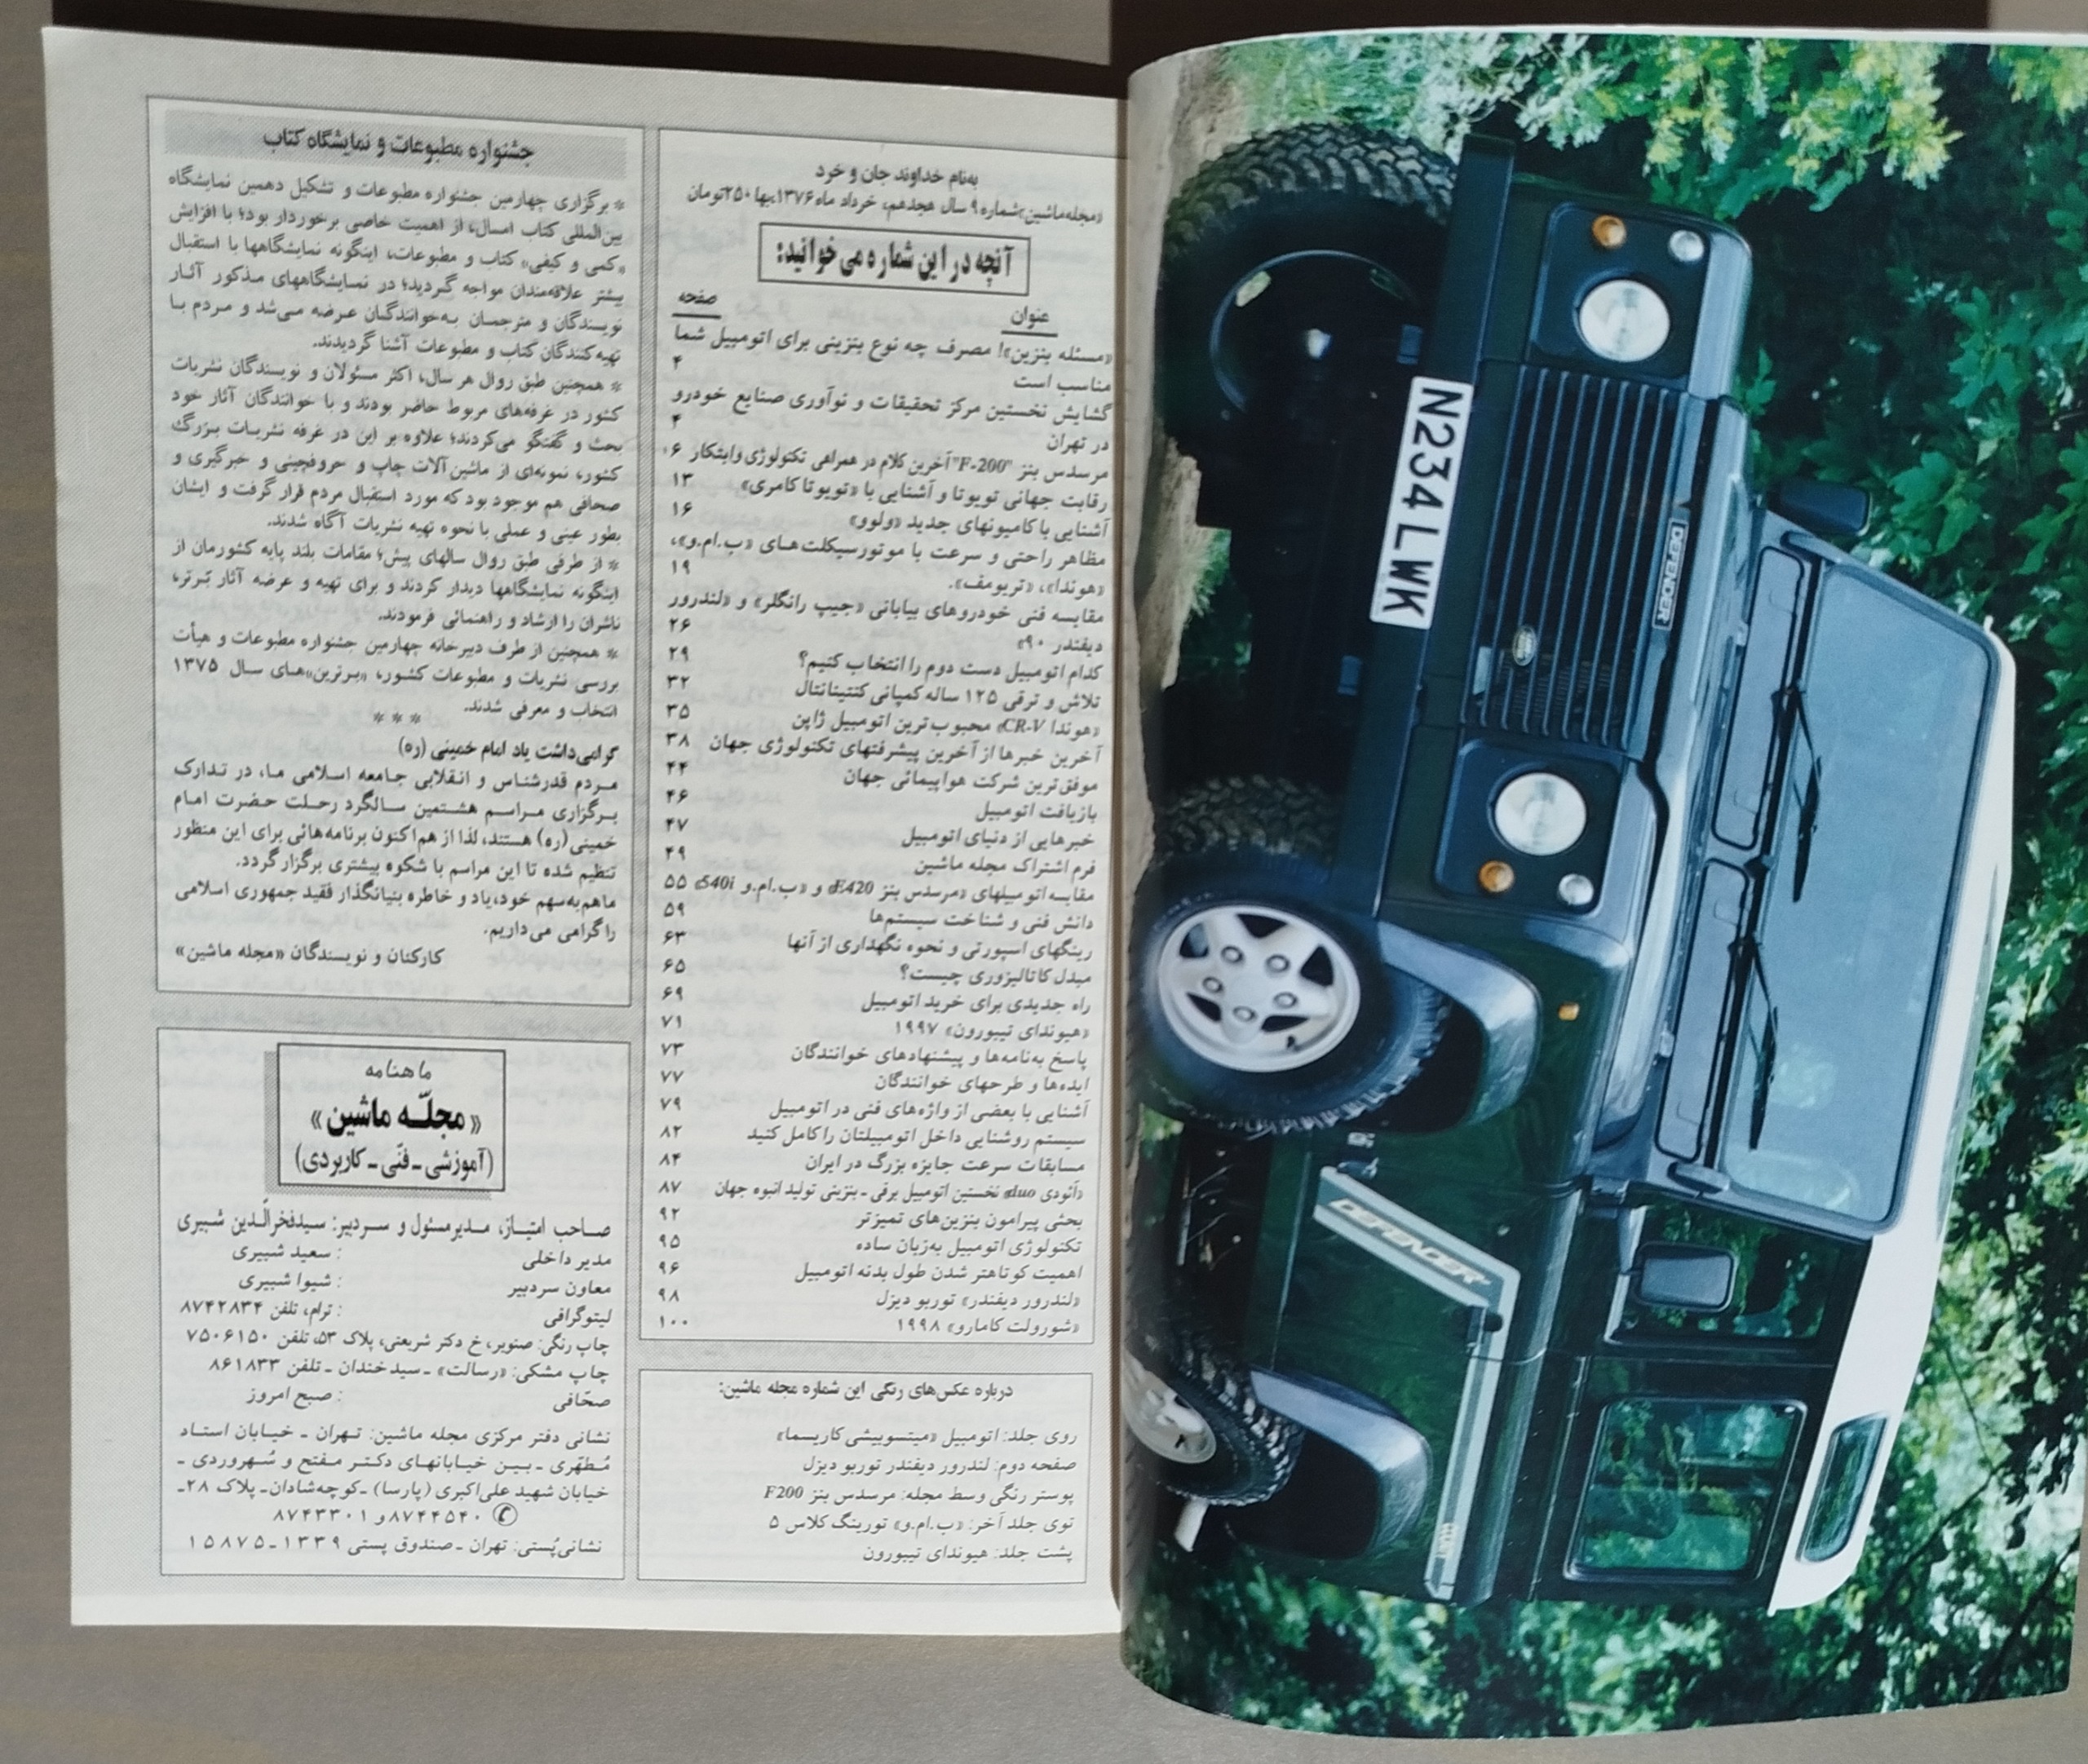 به‌نام خداوند جان و خرد
«مجله ماشین» شماره ۹ سال هجدهم، خرداد ماه ۱۳۷۶، بها ۲۵۰ تومان
آنچه در این شماره می‌خوانید:
عنوان صفحه
«مسئله بنزین»! مصرف چه نوع بنزینی برای اتومبیل شما
مناسب است ۴
گشایش نخستین مرکز تحقیقات و نوآوری صنایع خودرو
در تهران ۴
مرسدس بنز "F-200" آخرین کلام در همراهی تکنولوژی وابتکار ۶
رقابت جهانی تویوتا و آشنایی با «تویوتا کامری» ۱۳
آشنایی با کامیونهای جدید «ولوو» ۱۶
مظاهر راحتی و سرعت با موتورسیکلت‌های «ب.ام.و»،
«هوندا»، «تریومف». ۱۹
مقایسه فنی خودروهای بیابانی «جیپ رانگلر» و «لندرور
دیفندر ۹۰» ۲۶
کدام اتومبیل دست دوم را انتخاب کنیم؟ ۲۹
تلاش و ترقی ۱۲۵ ساله کمپانی کنتیناتال ۳۲
«هوندا CR-V» محبوب ترین اتومبیل ژاپن ۳۵
آخرین خبرها از آخرین پیشرفتهای تکنولوژی جهان ۳۸
موفق‌ترین شرکت هواپیمائی جهان ۴۴
بازیافت اتومبیل ۴۶
خبرهایی از دنیای اتومبیل ۴۷
فرم اشتراک مجله ماشین ۴۹
مقایسه اتومبیلهای «مرسدس بنز E420» و «ب.ام.و 540i» ۵۵
دانش فنی و شناخت سیستم‌ها ۵۹
رینگهای اسپورتی و نحوه نگهداری از آنها ۶۳
مبدل کاتالیزوری چیست؟ ۶۵
راه جدیدی برای خرید اتومبیل ۶۹
«هیوندای تیبورون» ۱۹۹۷ ۷۱
پاسخ به‌نامه‌ها و پیشنهادهای خوانندگان ۷۳
ایده‌ها و طرحهای خوانندگان ۷۷
آشنایی با بعضی از واژه‌های فنی در اتومبیل ۷۹
سیستم روشنایی داخل اتومبیلتان را کامل کنید ۸۲
مسابقات سرعت جایزه بزرگ در ایران ۸۴
«آئودی duo» نخستین اتومبیل برقی ـ بنزینی تولید انبوه جهان ۸۷
بحثی پیرامون بنزین‌های تمیزتر ۹۲
تکنولوژی اتومبیل به‌زبان ساده ۹۵
اهمیت کوتاهتر شدن طول بدنه اتومبیل ۹۶
«لندرور دیفندر» توربو دیزل ۹۸
«شورولت کامارو» ۱۹۹۸ ۱۰۰
درباره عکس‌های رنگی این شماره مجله ماشین:
روی جلد: اتومبیل «میتسوبیشی کاریسما»
صفحه دوم: لندرور دیفندر توربو دیزل
پوستر رنگی وسط مجله: مرسدس بنز F200
توی جلد آخر: «ب.ام.و» تورینگ کلاس ۵
پشت جلد: هیوندای تیبورون
جشنواره مطبوعات و نمایشگاه کتاب
* برگزاری چهارمین جشنواره مطبوعات و تشکیل دهمین نمایشگاه
بین‌المللی کتاب امسال، از اهمیت خاصی برخوردار بود؛ با افزایش
«کمی و کیفی» کتاب و مطبوعات، اینگونه نمایشگاهها با استقبال
بیشتر علاقه‌مندان مواجه گردید؛ در نمایشگاههای مذکور آثار
نویسندگان و مترجمان به‌خوانندگان عرضه می‌شد و مردم با
تهیه‌کنندگان کتاب و مطبوعات آشنا گردیدند.
* همچنین طبق روال هر سال، اکثر مسئولان و نویسندگان نشریات
کشور در غرفه‌های مربوط حاضر بودند و با خوانندگان آثار خود
بحث و گفتگو می‌کردند؛ علاوه بر این در غرفه نشریات بزرگ
کشور، نمونه‌ای از ماشین‌آلات چاپ و حروفچینی و خبرگیری و
صحافی هم موجود بود که مورد استقبال مردم قرار گرفت و ایشان
بطور عینی و عملی با نحوه تهیه نشریات آگاه شدند.
* از طرفی طبق روال سالهای پیش؛ مقامات بلند پایه کشورمان از
اینگونه نمایشگاهها دیدار کردند و برای تهیه و عرضه آثار برتر،
ناشران را ارشاد و راهنمائی فرمودند.
* همچنین از طرف دبیرخانه چهارمین جشنواره مطبوعات و هیأت
بررسی نشریات و مطبوعات کشور، «برترین»های سال ۱۳۷۵
انتخاب و معرفی شدند.
* * *
گرامی‌داشت یاد امام خمینی (ره)
مردم قدرشناس و انقلابی جامعه اسلامی ما، در تدارک
برگزاری مراسم هشتمین سالگرد رحلت حضرت امام
خمینی(ره) هستند، لذا از هم‌اکنون برنامه‌هائی برای این منظور
تنظیم شده تا این مراسم با شکوه بیشتری برگزار گردد.
ماهم‌به‌سهم خود، یاد و خاطره بنیانگذار فقید جمهوری اسلامی
را گرامی می‌داریم.
کارکنان و نویسندگان «مجله ماشین»
ماهنامه
«مجلّه ماشین»
(آموزشی ـ فنّی ـ کاربردی)
صاحب امتیاز، مدیرمسئول و سردبیر: سیدفخرالّدین شبیری
مدیر داخلی : سعید شبیری
معاون سردبیر : شیوا شبیری
لیتوگرافی : ترام، تلفن ۸۷۴۲۸۳۴
چاپ رنگی: صنوبر، خ دکتر شریعتی، پلاک ۵۳، تلفن ۷۵۰۶۱۵۰
چاپ مشکی: «رسالت» ـ سیدخندان ـ تلفن ۸۶۱۸۳۳
صحّافی : صبح امروز
نشانی دفتر مرکزی مجله ماشین: تهران ـ خیابان استاد
مُطهّری ـ بین خیابانهای دکتر مفتح و سُهروردی ـ
خیابان شهید علی‌اکبری (پارسا) ـ کوچه‌شادان ـ پلاک ۲۸ـ
✆ ۸۷۴۴۵۴۰ و ۸۷۴۳۳۰۱
نشانی‌پُستی: تهران ـ صندوق پستی ۱۳۳۹ـ۱۵۸۷۵
N234 LWK
DEFENDER
DEFENDER